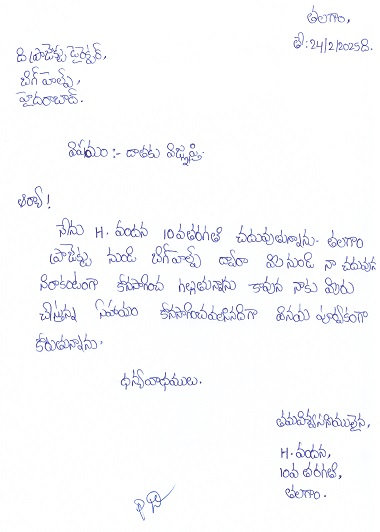 తలగాం,
తే:24/2/2025ది.
ది ప్రాజెక్టు డైరెక్టర్,
బిగ్ హెల్ప్,
హైదరాబాద్.
విషయం :- దాతకు విజ్ఞప్తి.
ఆర్యా!
నేను H. వందన 10వతరగతి చదువుతున్నాను. తలగాం
ప్రాజెక్టు నుండి బిగ్‌హెల్ప్ ద్వారా మీనుండి నా చదువును
నిరాకటంగా కొనసాగించ గల్గుతున్నాను కావున నాకు మీరు
చేస్తున్న సహాయం కొనసాగించవలసినదిగా వినయ పూర్వకంగా
కోరుతున్నాను.
ధన్యవాధములు.
తమవిశ్వసనీయులైన,
H. వందన,
10వ తరగతి,
తలగాం.